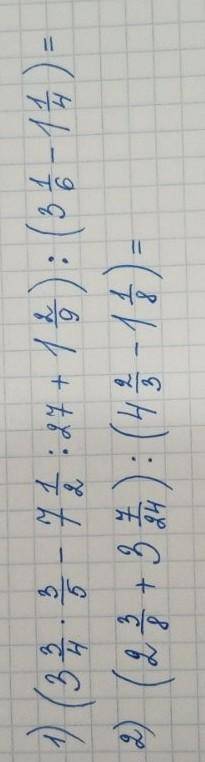 1) (3 3/4 · 3/5 - 7 1/2 : 27 + 1 2/9) : (3 1/6 - 1 1/4) =
2) (2 3/8 + 3 7/24) : (4 2/3 - 1 1/8) =